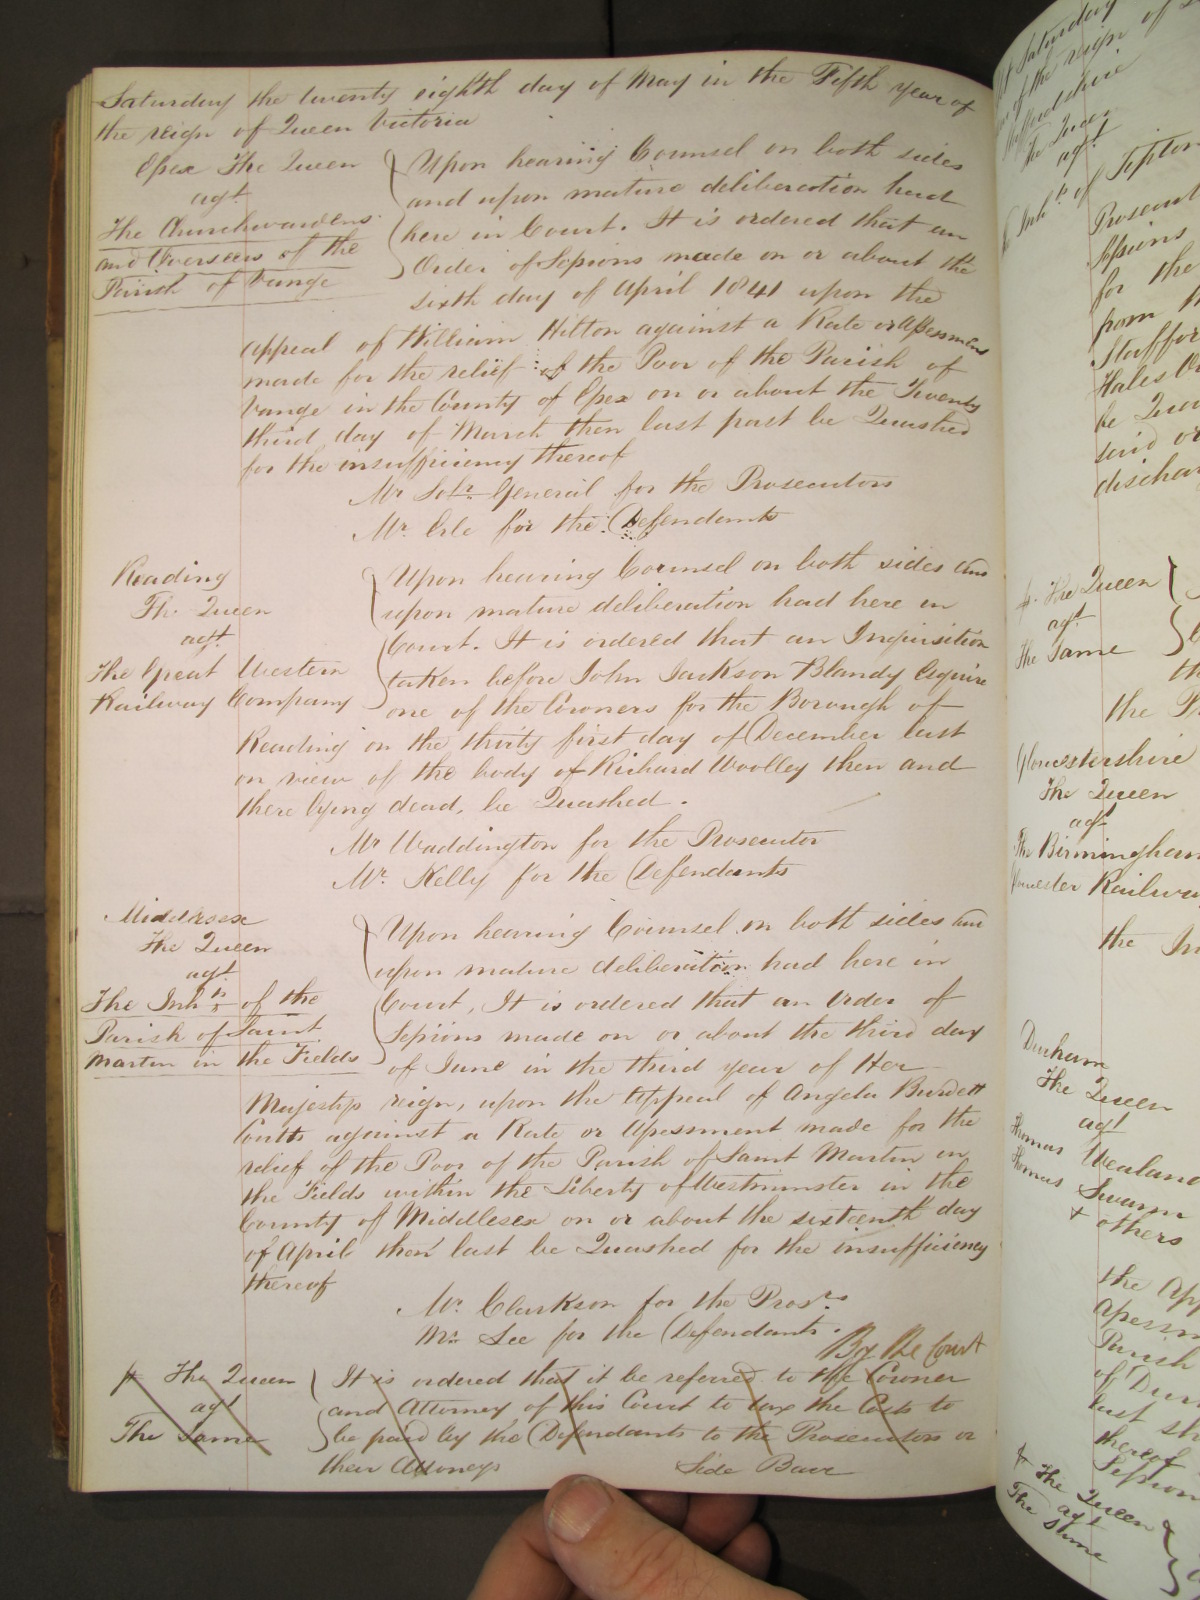 Saturday the twenty eighth day of May in the Fifth year of
the reign of Queen Victoria
Essex The Queen
agt
The Churchwardens
and Overseers of the
Parish of Vange
Upon hearing Counsel on both sides
and upon mature deliberation had
here in Court. It is ordered that an
Order of Sessions made on or about the
sixth day of April 1841 upon the
appeal of William Hilton against a Rate or Assessment
made for the relief of the Poor of the Parish of
Vange in the County of Essex on or about the Twenty
third day of March then last past be Quashed
for the insufficiency thereof
Mr Solr General for the Prosecutors
Mr. Erle for the Defendants
Reading
The Queen
agt
The Great Western
Railway Company
Upon hearing Counsel on both sides and
upon mature deliberation had here in
Court. It is ordered that an Inquisition
taken before John Jackson Blandy Esquire
one of the Coroners for the Borough of
Reading on the thirty first day of December last
on view of the body of Richard Woolley then and
there lying dead, be Quashed.
Mr Waddington for the Prosecutor
Mr. Kelly for the Defendants
Middlesex
The Queen
agt
The Inhts of the
Parish of Saint
Martin in the Fields
Upon hearing Counsel on both sides and
upon mature deliberation had here in
Court, It is ordered that an Order of
Sessions made on or about the third day
of June in the third year of Her
Majestys reign, upon the Appeal of Angela Burdett
Coutts against a Rate or Assessment made for the
relief of the Poor of the Parish of Saint Martin in
the Fields within the Liberty of Westminster in the
County of Middlesex on or about the sixteenth day
of April then last be Quashed for the insufficiency
thereof
Mr. Clarkson for the Prosrs.
Mr. Lee for the Defendants.
By the Court
The Queen
agt
The Same
It is ordered that it be referred to the Coroner
and Attorney of this Court to tax the Costs to
be paid by the Defendants to the Prosecutors or
their Attorneys
Side Barr
Saturday
of the reign of
The Queen
agt
Inhts of Tipton
Prosecut
Sessions
for the
from
Staffor
Hales
be Qua
said or
dischar
The Queen
agt
The Same
the
Gloucestershire
The Queen
agt
The Birmingham
Gloucester Railway
the In
Durham
The Queen
agt
Thomas
Thomas Swann
& others
the App
Assessm
Parish
of Dur
last
thereof
Session
The Queen
agt
The Same